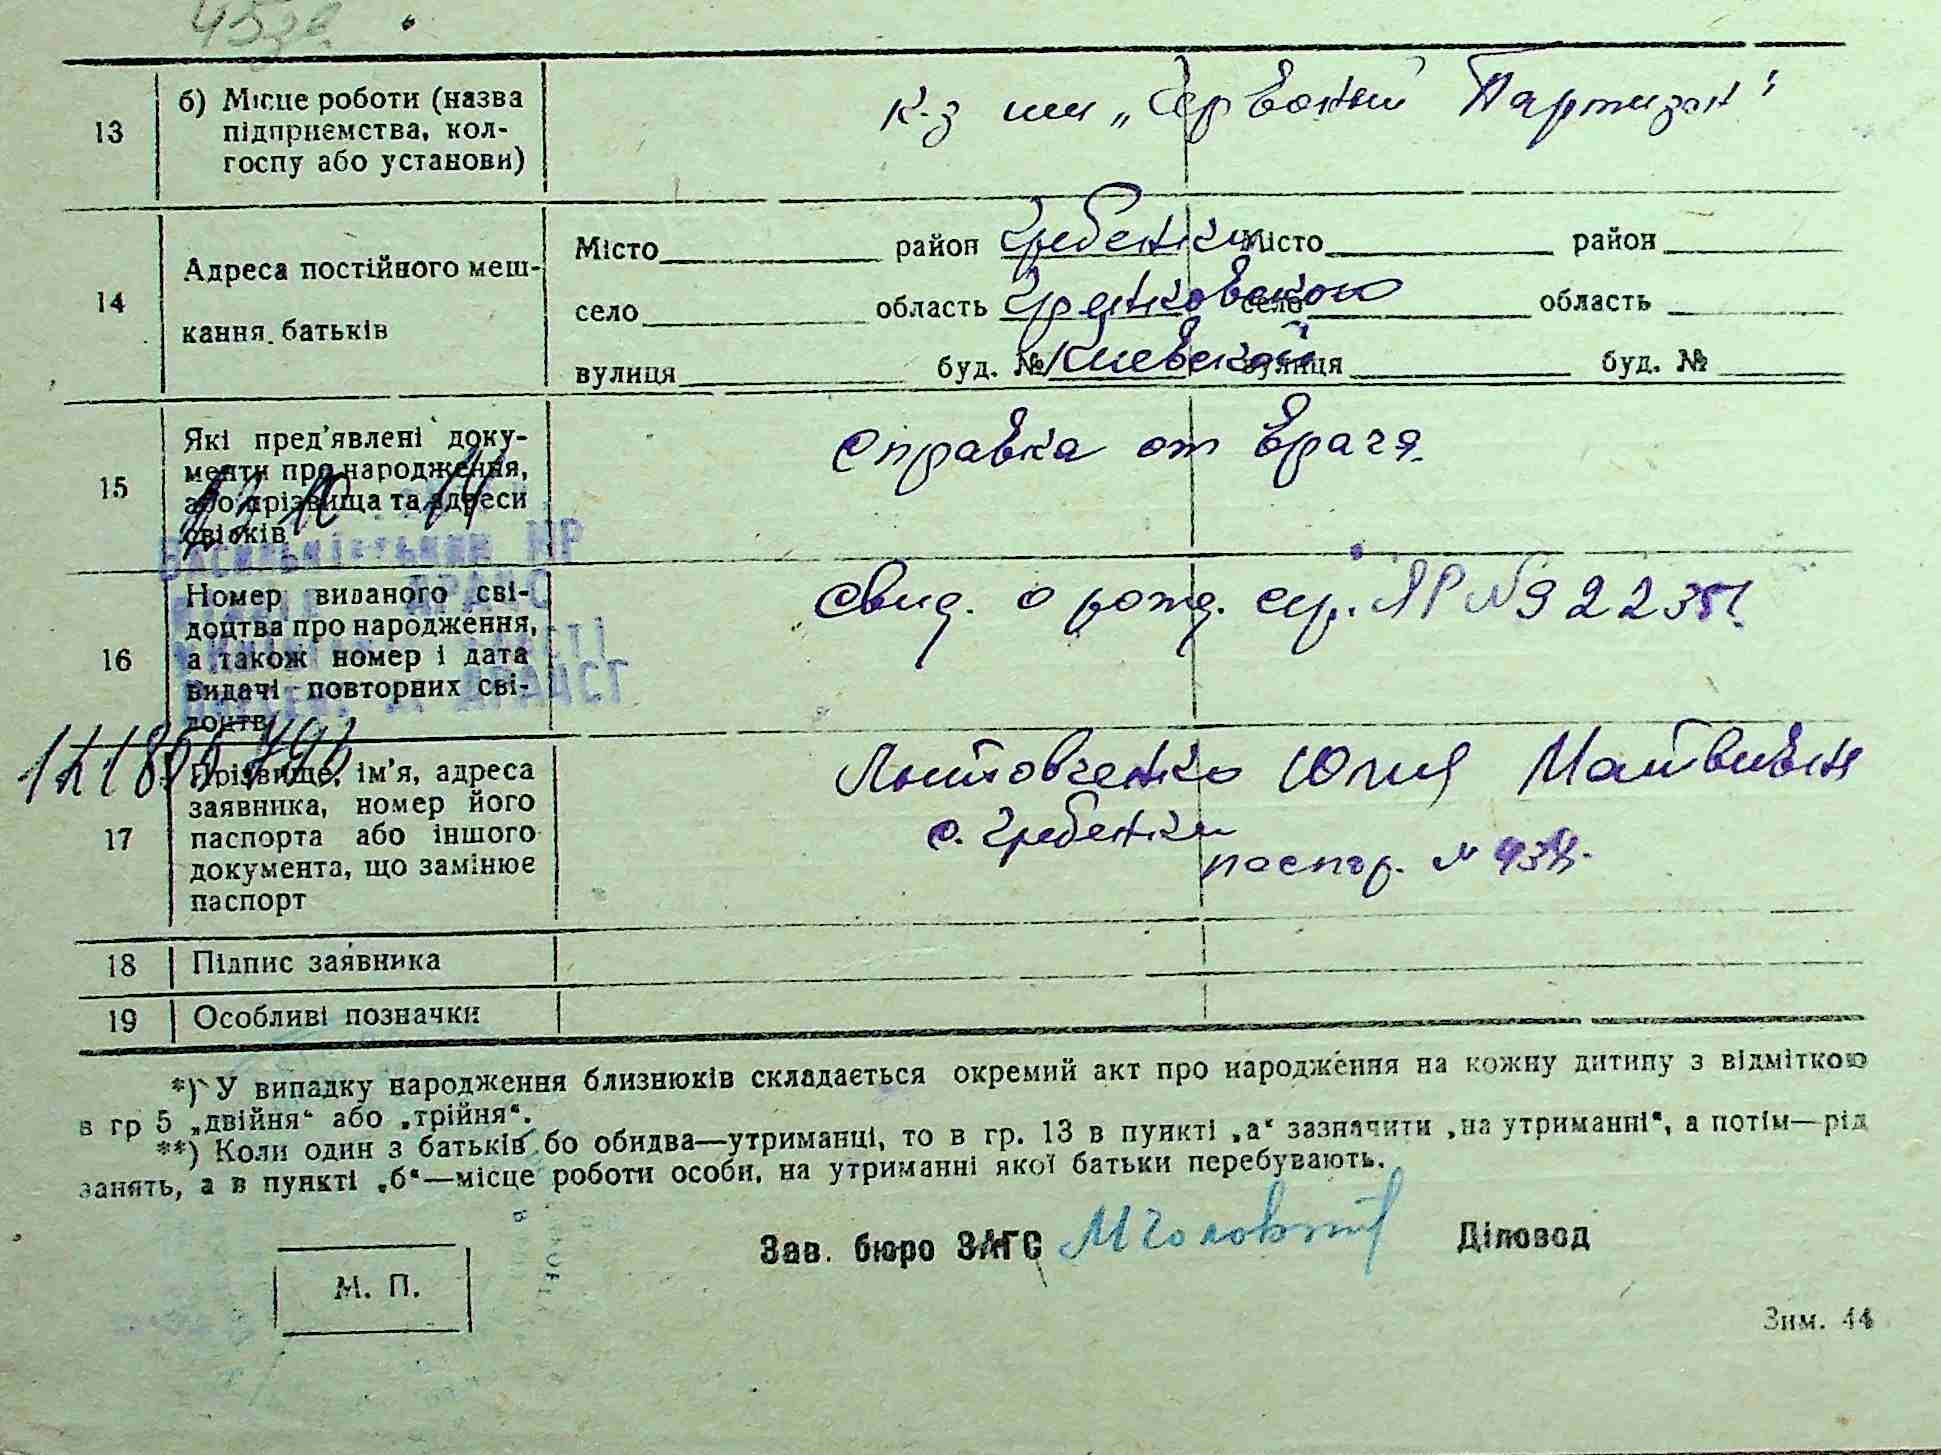 45зв
13 б) Місце роботи (назва
підприємства, кол-
госпу або установи)
к-з им „Червоный Партизан"
14 Адреса постійного меш-
кання батьків
Місто район Гребенки Місто район
село область Гребенковского село область
вулиця буд. № Киевской вулиця буд. №
15 Які пред'явлені доку-
менти про народження,
або прізвища та адреси
свідків
Справка от врача
13 10 11
16 Номер виданого сві-
доцтва про народження,
а також номер і дата
видачі повторних сві-
доцтв
Свид. о рожд. сер. ЯР № 922351.
17 Прізвище, ім'я, адреса
заявника, номер його
паспорта або іншого
документа, що замінює
паспорт
Литовченко Юлия
с. Гребенки
паспор. №
18 Підпис заявника
19 Особливі позначки
*) У випадку народження близнюків складається окремий акт про народження на кожну дитину з відміткою
в гр 5 „двійня“ або „трійня“.
**) Коли один з батьків бо обидва—утриманці, то в гр. 13 в пункті „а“ зазначити „на утриманні“, а потім—рід
занять, а в пункті „б“—місце роботи особи, на утриманні якої батьки перебувають.
Зав. бюро ЗАГС Діловод
М. П.
Зим. 44